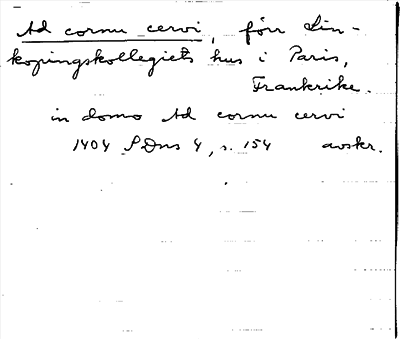 Ad cornu cervi, förr Lin-
köpingskollegiets hus i Paris,
Frankrike.
in domo Ad cornu cervi
1404 SDns 4, s. 154 avskr.